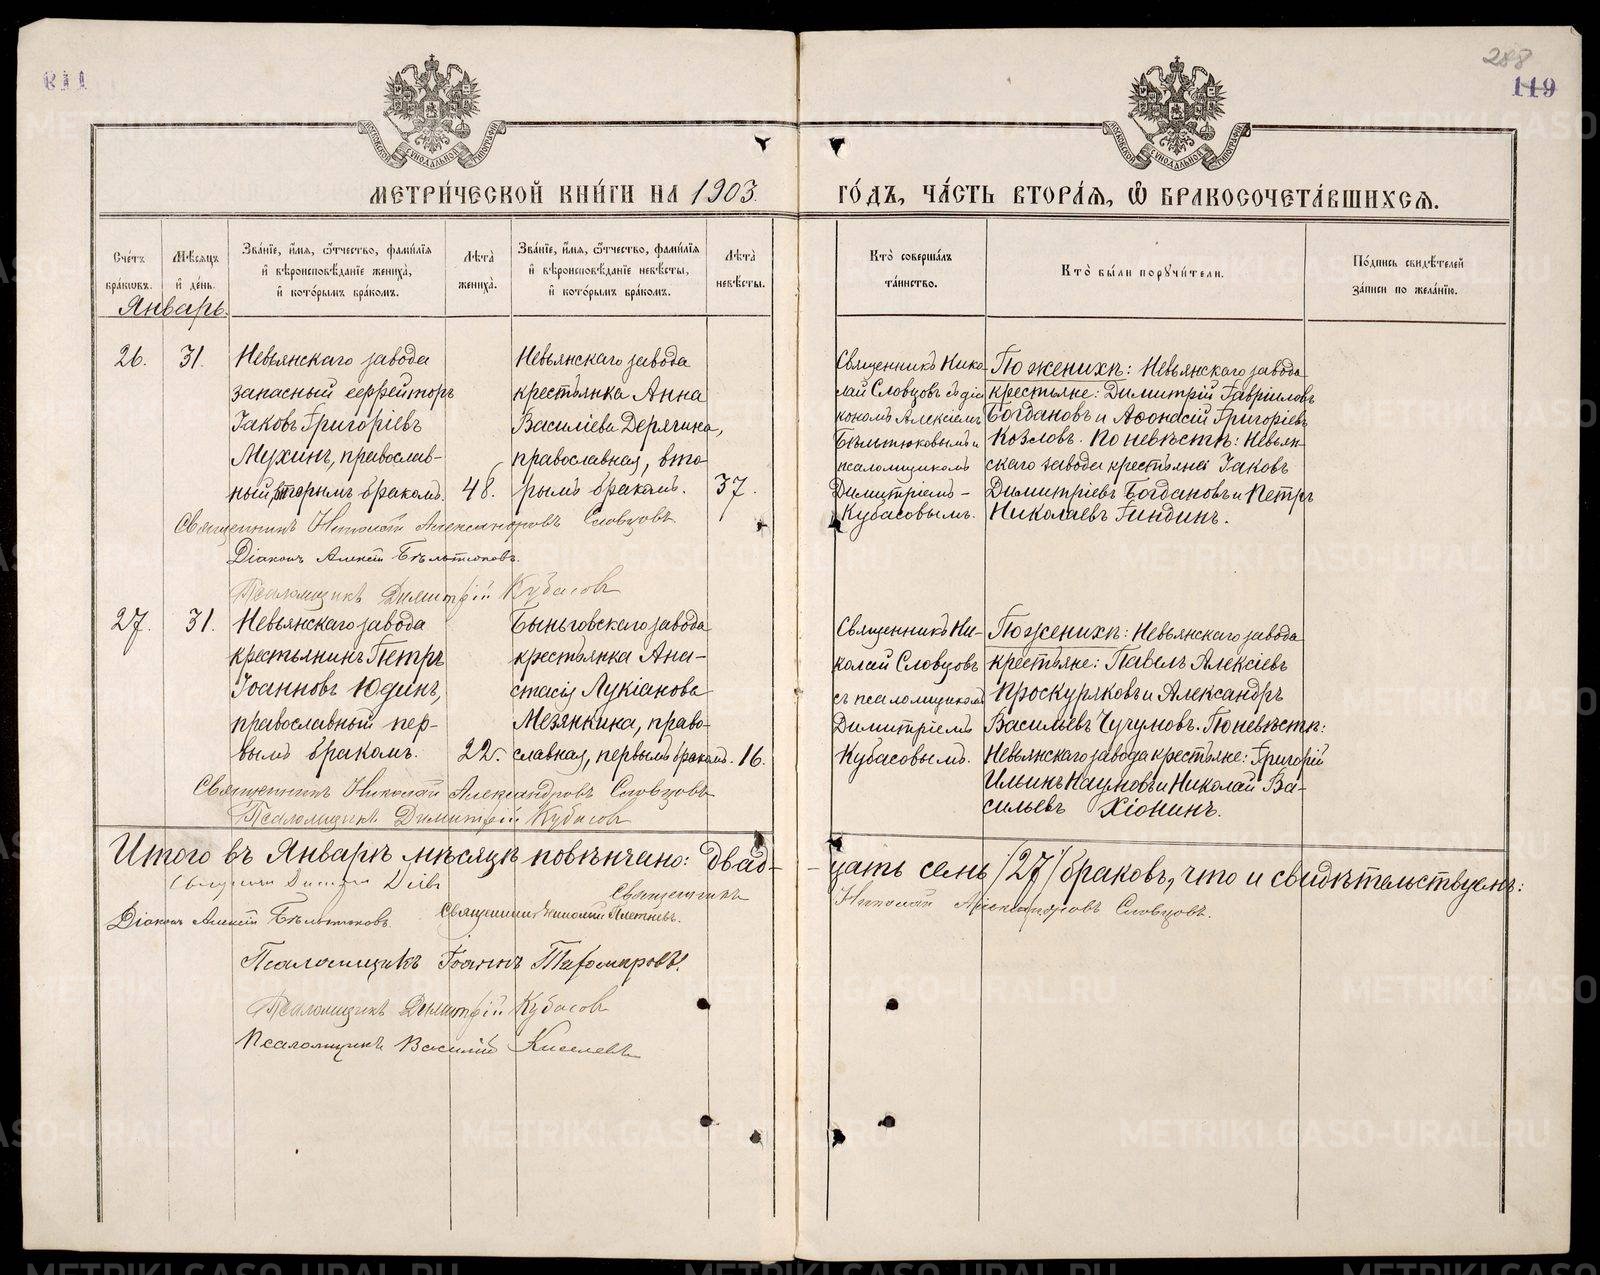 288
119
МОСКОВСКОЙ СѴНОДАЛЬНОЙ ТИПОГРАФІИ
МОСКОВСКОЙ СѴНОДАЛЬНОЙ ТИПОГРАФІИ
МЕТРИ́ЧЕСКОЙ КНИ́ГИ НА 1903
ГО́ДЪ, ЧА́СТЬ ВТОРА́Ѧ, Ѡ҆ БРАКОСОЧЕТА́ВШИХСѦ.
Сче́тъ бра́кѡвъ.
Мѣ́сѧцъ и҆ де́нь.
Зва́нїе, и҆́мѧ, ѻ҆́тчество, фами́лїѧ и҆ вѣроисповѣ́данїе жениха̀, и҆ кото́рымъ бра́комъ.
Лѣ́та жениха̀.
Зва́нїе, и҆́мѧ, ѻ҆́тчество, фами́лїѧ и҆ вѣроисповѣ́данїе невѣ́сты, и҆ кото́рымъ бра́комъ.
Лѣ́та невѣ́сты.
Кто̀ соверша́лъ та́инство.
Кто̀ бы́ли порꙋчи́тели.
По́дпись свидѣ́телей за́писи по жела́нїю.
Январь.
26.
31.
Невьянскаго завода
запасный ефрейторъ
Іаковъ Григоріевъ
Мухинъ, православ-
ный, вторымъ бракомъ.
48.
Невьянскаго завода
крестьянка Анна
Василіева Дерягина,
православная, вто
рымъ бракомъ.
37.
Священникъ Нико-
лай Словцовъ съ діа
кономъ Алексіемъ
Бѣльтюковымъ и
псаломщикомъ
Димитріемъ -
Кубасовымъ.
По женихѣ: Невьянскаго завода
крестьяне: Димитрій Гавріиловъ
Богдановъ и Аѳонасій Григоріевъ
Козловъ. По невѣстѣ: Невьян-
скаго завода крестьяне Іаковъ
Димитріевъ Богдановъ и Петръ
Николаевъ Гиндинъ.
Священникъ Николай Александровъ Словцовъ
Діаконъ Алексій Бѣльтюковъ.
Псаломщикъ Димитрій Кубасовъ
27.
31.
Невьянскаго завода
крестьянинъ Петръ
Іоанновъ Юдинъ,
православный пер-
вымъ бракомъ.
22.
Быньговскаго завода
крестьянка Ана-
стасія Лукіанова
Мезянкина, право-
славная, первымъ бракомъ.
16.
Священникъ Ни-
колай Словцовъ
съ псаломщикомъ
Димитріемъ
Кубасовымъ.
По женихѣ: Невьянскаго завода
крестьяне: Павелъ Алексіевъ
Проскуряковъ и Александръ
Васильевъ Чугуновъ. По невѣстѣ:
Невьянскаго завода крестьяне: Григорій
Ильинъ Наумовъ и Николай Ва-
сильевъ Хіонинъ.
Священникъ Николай Александровъ Словцовъ
Псаломщикъ Димитрій Кубасовъ
Итого въ Январѣ мѣсяцѣ повѣнчано: двад-
цать семь /27/ браковъ, что и свидѣтельствуемъ:
Священникъ
Николай Александровъ Словцовъ.
Діаконъ Алексій Бѣльтюковъ.
Священникъ Плетневъ.
Псаломщикъ Іоаннъ
Псаломщикъ Димитрій Кубасовъ
Псаломщикъ Василій Киселевъ
METRIKI.GASO-URAL.RU